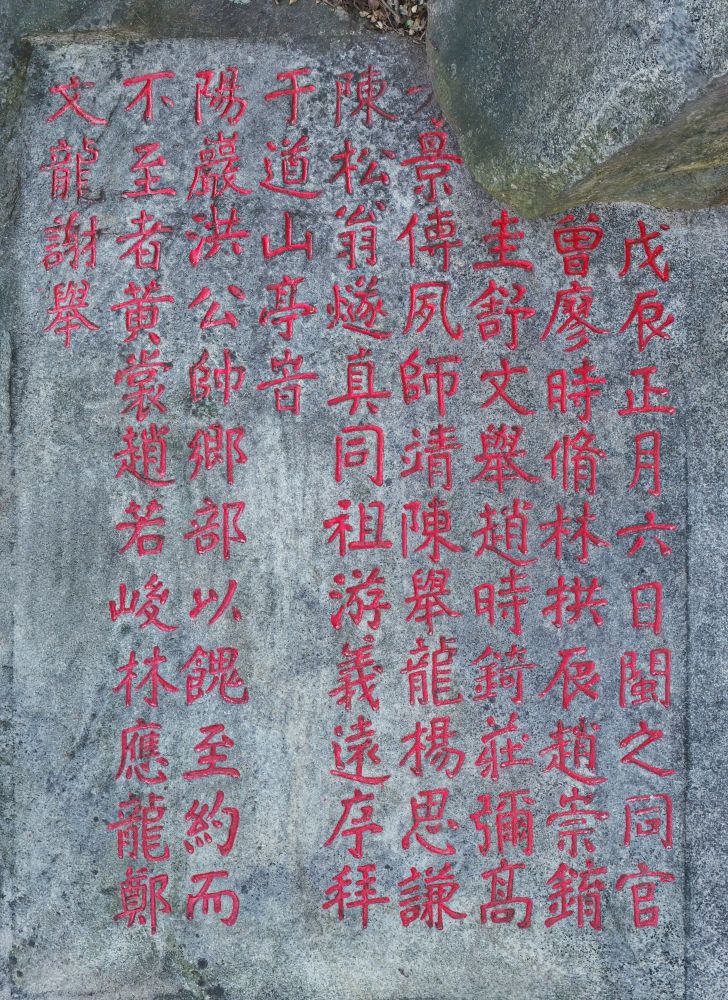 戊辰正月六日閩之同官
曾廖時脩林拱辰趙崇錥
圭舒文舉趙時錡莊彌高
景傳夙師靖陳舉龍楊思謙
陳松翁燧真同祖游義遠序拜
于道山亭音
陽巖洪公帥鄉部以餽至約而
不至者黃裳趙若峻林應龍鄭
文龍謝舉